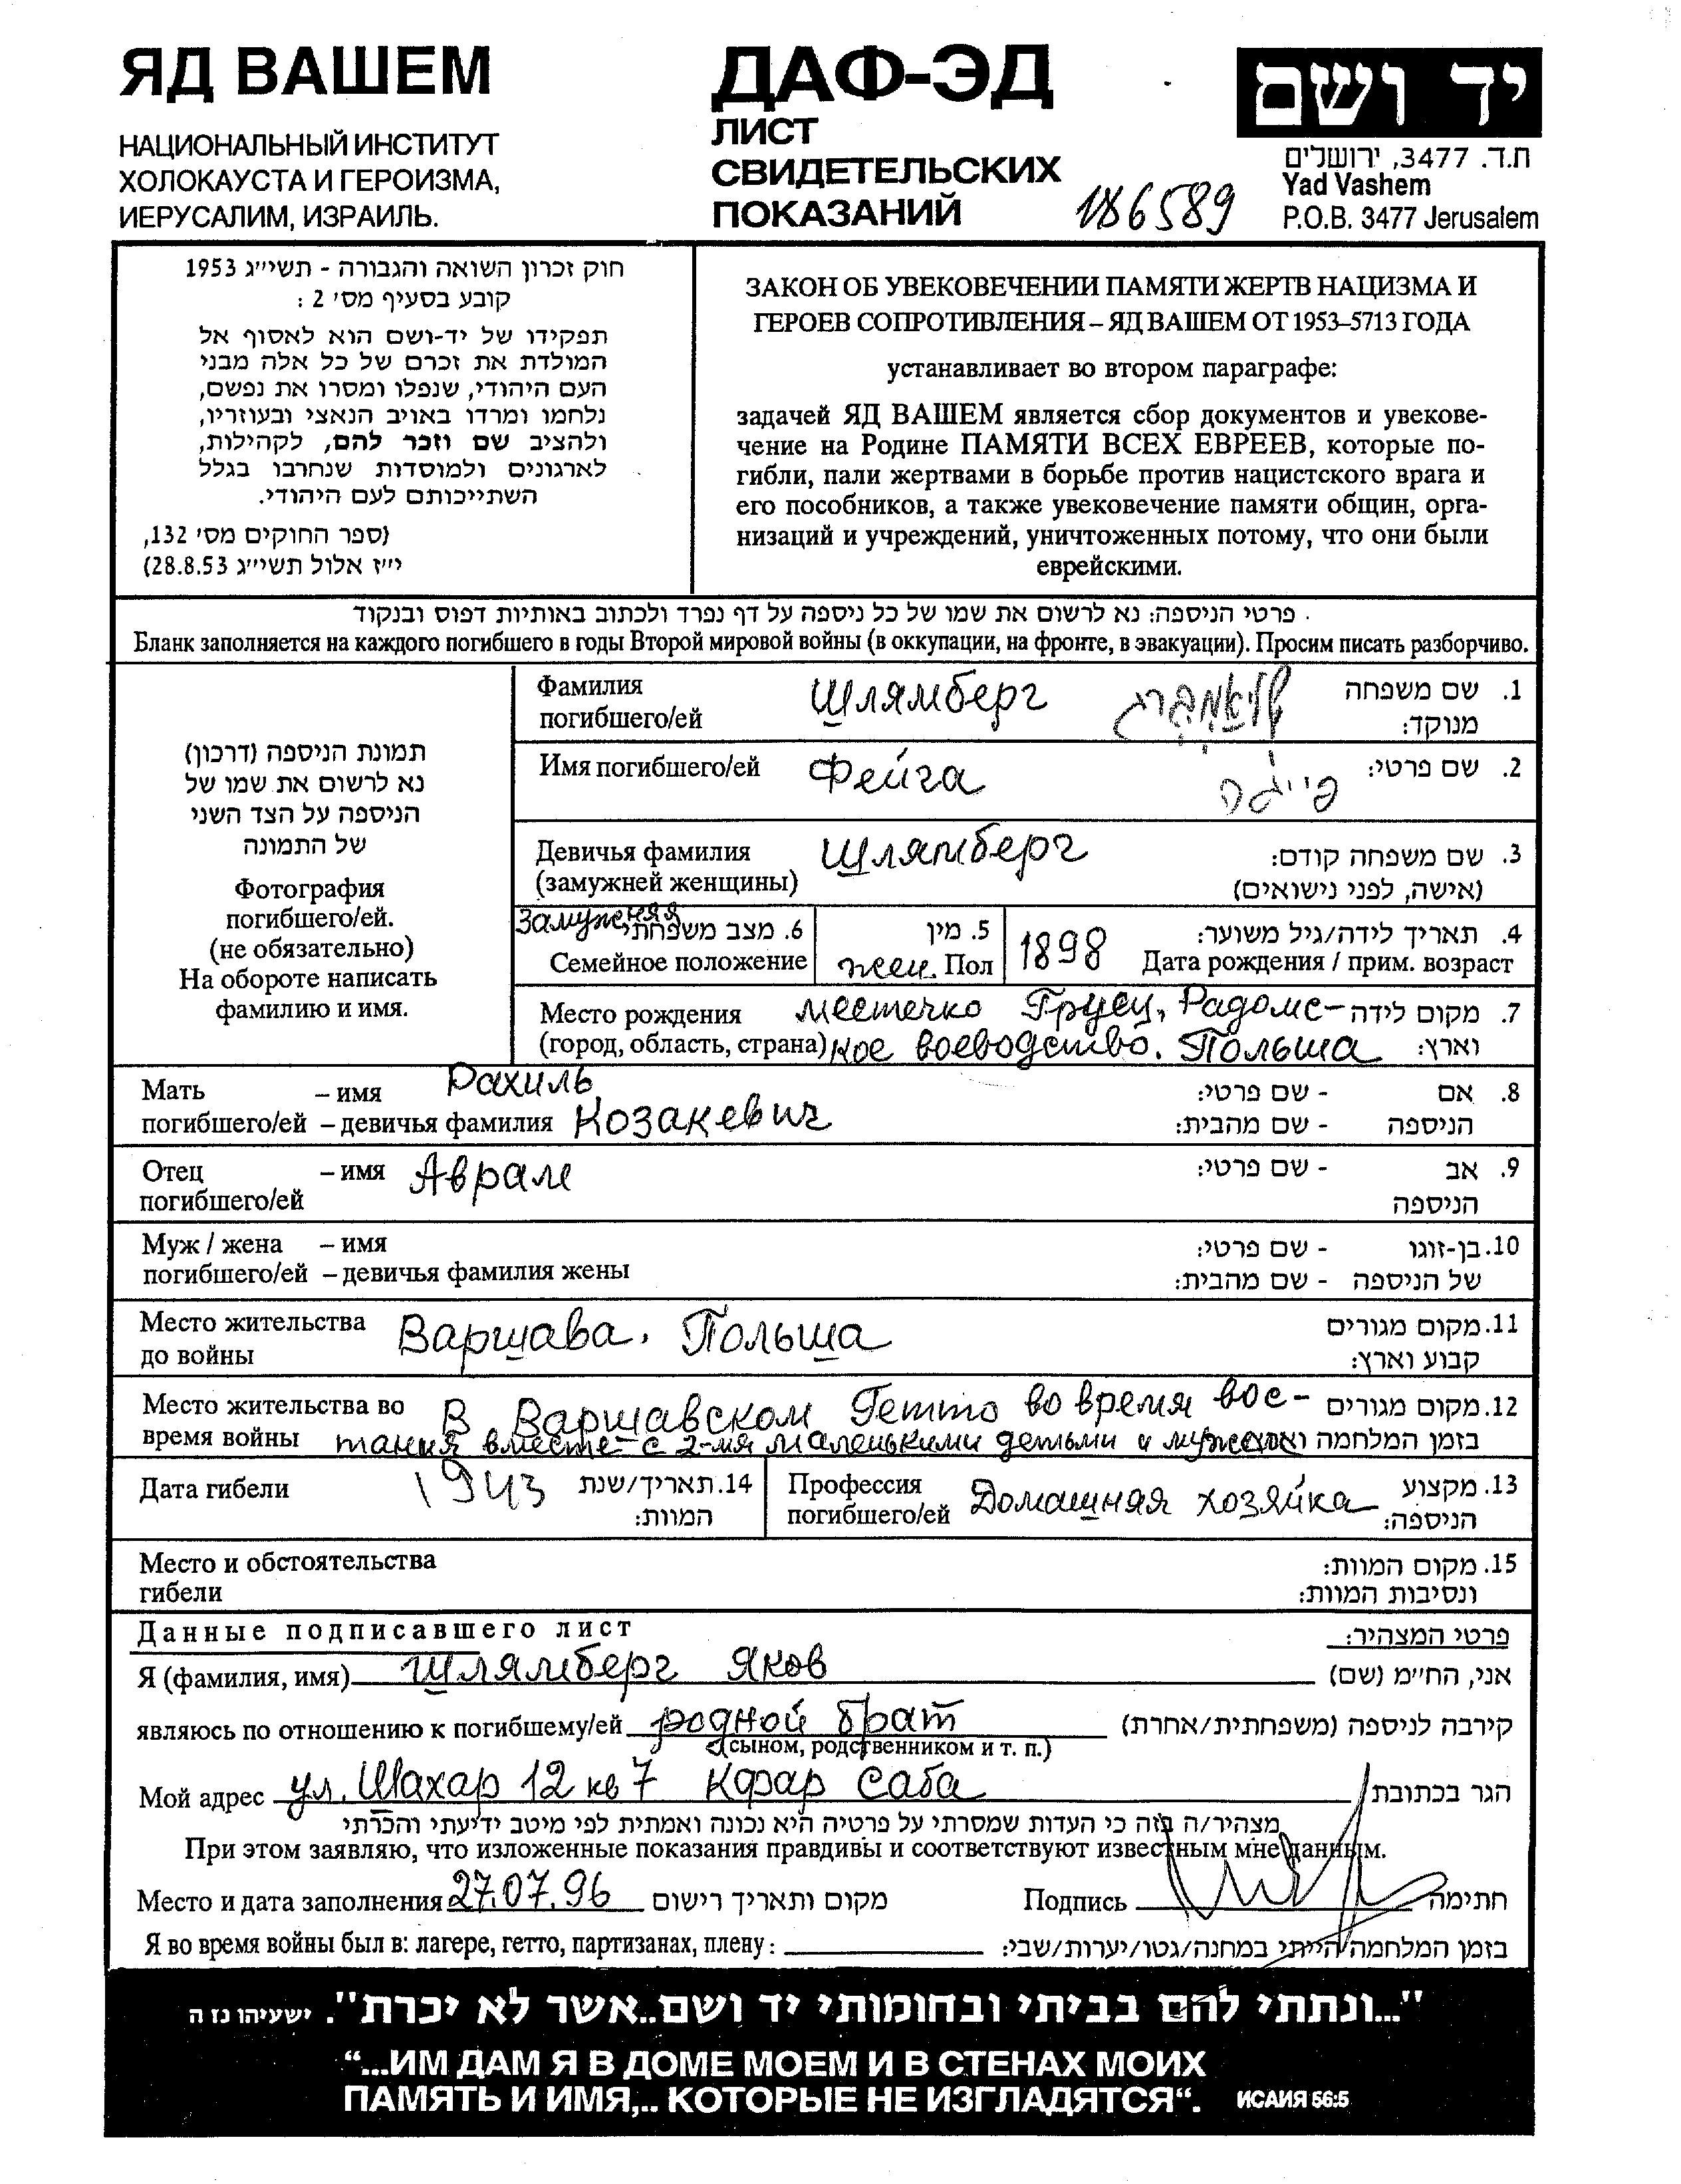 ЯД ВАШЕМ
НАЦИОНАЛЬНЫЙ ИНСТИТУТ
ХОЛОКАУСТА И ГЕРОИЗМА,
ИЕРУСАЛИМ, ИЗРАИЛЬ.
ДАФ-ЭД
ЛИСТ
СВИДЕТЕЛЬСКИХ
ПОКАЗАНИЙ
186589
יד ושם
ת.ד. 3477, ירושלים
Yad Vashem
P.O.B. 3477 Jerusalem
חוק זכרון השואה והגבורה - תשי״ג 1953
קובע בסעיף מס׳ 2 :
תפקידו של יד-ושם הוא לאסוף אל
המולדת את זכרם של כל אלה מבני
העם היהודי, שנפלו ומסרו את נפשם,
נלחמו ומרדו באויב הנאצי ובעוזריו,
ולהציב שם וזכר להם, לקהילות,
לארגונים ולמוסדות שנחרבו בגלל
השתייכותם לעם היהודי.
(ספר החוקים מס׳ 132,
י״ז אלול תשי״ג 28.8.53)
ЗАКОН ОБ УВЕКОВЕЧЕНИИ ПАМЯТИ ЖЕРТВ НАЦИЗМА И
ГЕРОЕВ СОПРОТИВЛЕНИЯ – ЯД ВАШЕМ ОТ 1953–5713 ГОДА
устанавливает во втором параграфе:
задачей ЯД ВАШЕМ является сбор документов и увекове-
чение на Родине ПАМЯТИ ВСЕХ ЕВРЕЕВ, которые по-
гибли, пали жертвами в борьбе против нацистского врага и
его пособников, а также увековечение памяти общин, орга-
низаций и учреждений, уничтоженных потому, что они были
еврейскими.
פרטי הניספה: נא לרשום את שמו של כל ניספה על דף נפרד ולכתוב באותיות דפוס ובנקוד .
Бланк заполняется на каждого погибшего в годы Второй мировой войны (в оккупации, на фронте, в эвакуации). Просим писать разборчиво.
תמונת הניספה (דרכון)
נא לרשום את שמו של
הניספה על הצד השני
של התמונה
Фотография
погибшего/ей.
(не обязательно)
На обороте написать
фамилию и имя.
Фамилия Шлямберг שליאמברג 1. שם משפחה
погибшего/ей מנוקד:
Имя погибшего/ей Фейга פייגה 2. שם פרטי:
Девичья фамилия Шлямберг 3. שם משפחה קודם:
(замужней женщины) (אישה, לפני נישואים)
Замужняя 6. מצב משפחתי 5. מין 1898 4. תאריך לידה/גיל משוער:
Семейное положение жен. Пол Дата рождения / прим. возраст
Место рождения местечко Груец, Радомс- 7. מקום לידה
(город, область, страна) кое воеводство. Польша וארץ:
Мать – имя Рахиль 8. אם - שם פרטי:
погибшего/ей – девичья фамилия Козакевич הניספה - שם מהבית:
Отец – имя Аврам 9. אב - שם פרטי:
погибшего/ей הניספה
Муж / жена – имя 10. בן-זוגו - שם פרטי:
погибшего/ей – девичья фамилия жены של הניספה - שם מהבית:
Место жительства Варшава. Польша 11. מקום מגורים
до войны קבוע וארץ:
Место жительства во В Варшавском Гетто во время вос- 12. מקום מגורים
время войны тания вместе с 2-мя маленькими детьми и мужем בזמן המלחמה
Дата гибели 1943 14. תאריך/שנת
המוות:
Профессия Домашняя хозяйка 13. מקצוע
погибшего/ей הניספה:
Место и обстоятельства 15. מקום המוות:
гибели ונסיבות המוות:
Данные подписавшего лист פרטי המצהיר:
Я (фамилия, имя) Шлямберг Яков אני, הח״מ (שם)
являюсь по отношению к погибшему/ей родной брат קירבה לניספה (משפחתית/אחרת)
(сыном, родственником и т. п.)
Мой адрес ул. Шахар 12 кв 7 Кфар Саба הגר בכתובת
מצהיר/ה בזה כי העדות שמסרתי על פרטיה היא נכונה ואמתית לפי מיטב ידיעתי והכרתי
При этом заявляю, что изложенные показания правдивы и соответствуют известным мне данным.
Место и дата заполнения 27.07.96 מקום ותאריך רישום Подпись חתימה
Я во время войны был в: лагере, гетто, партизанах, плену: בזמן המלחמה הייתי במחנה/גטו/יערות/שבי:
"...ונתתי להם בביתי ובחומותי יד ושם..אשר לא יכרת". ישעיהו נו ה
“...ИМ ДАМ Я В ДОМЕ МОЕМ И В СТЕНАХ МОИХ
ПАМЯТЬ И ИМЯ,.. КОТОРЫЕ НЕ ИЗГЛАДЯТСЯ“. ИСАИЯ 56:5